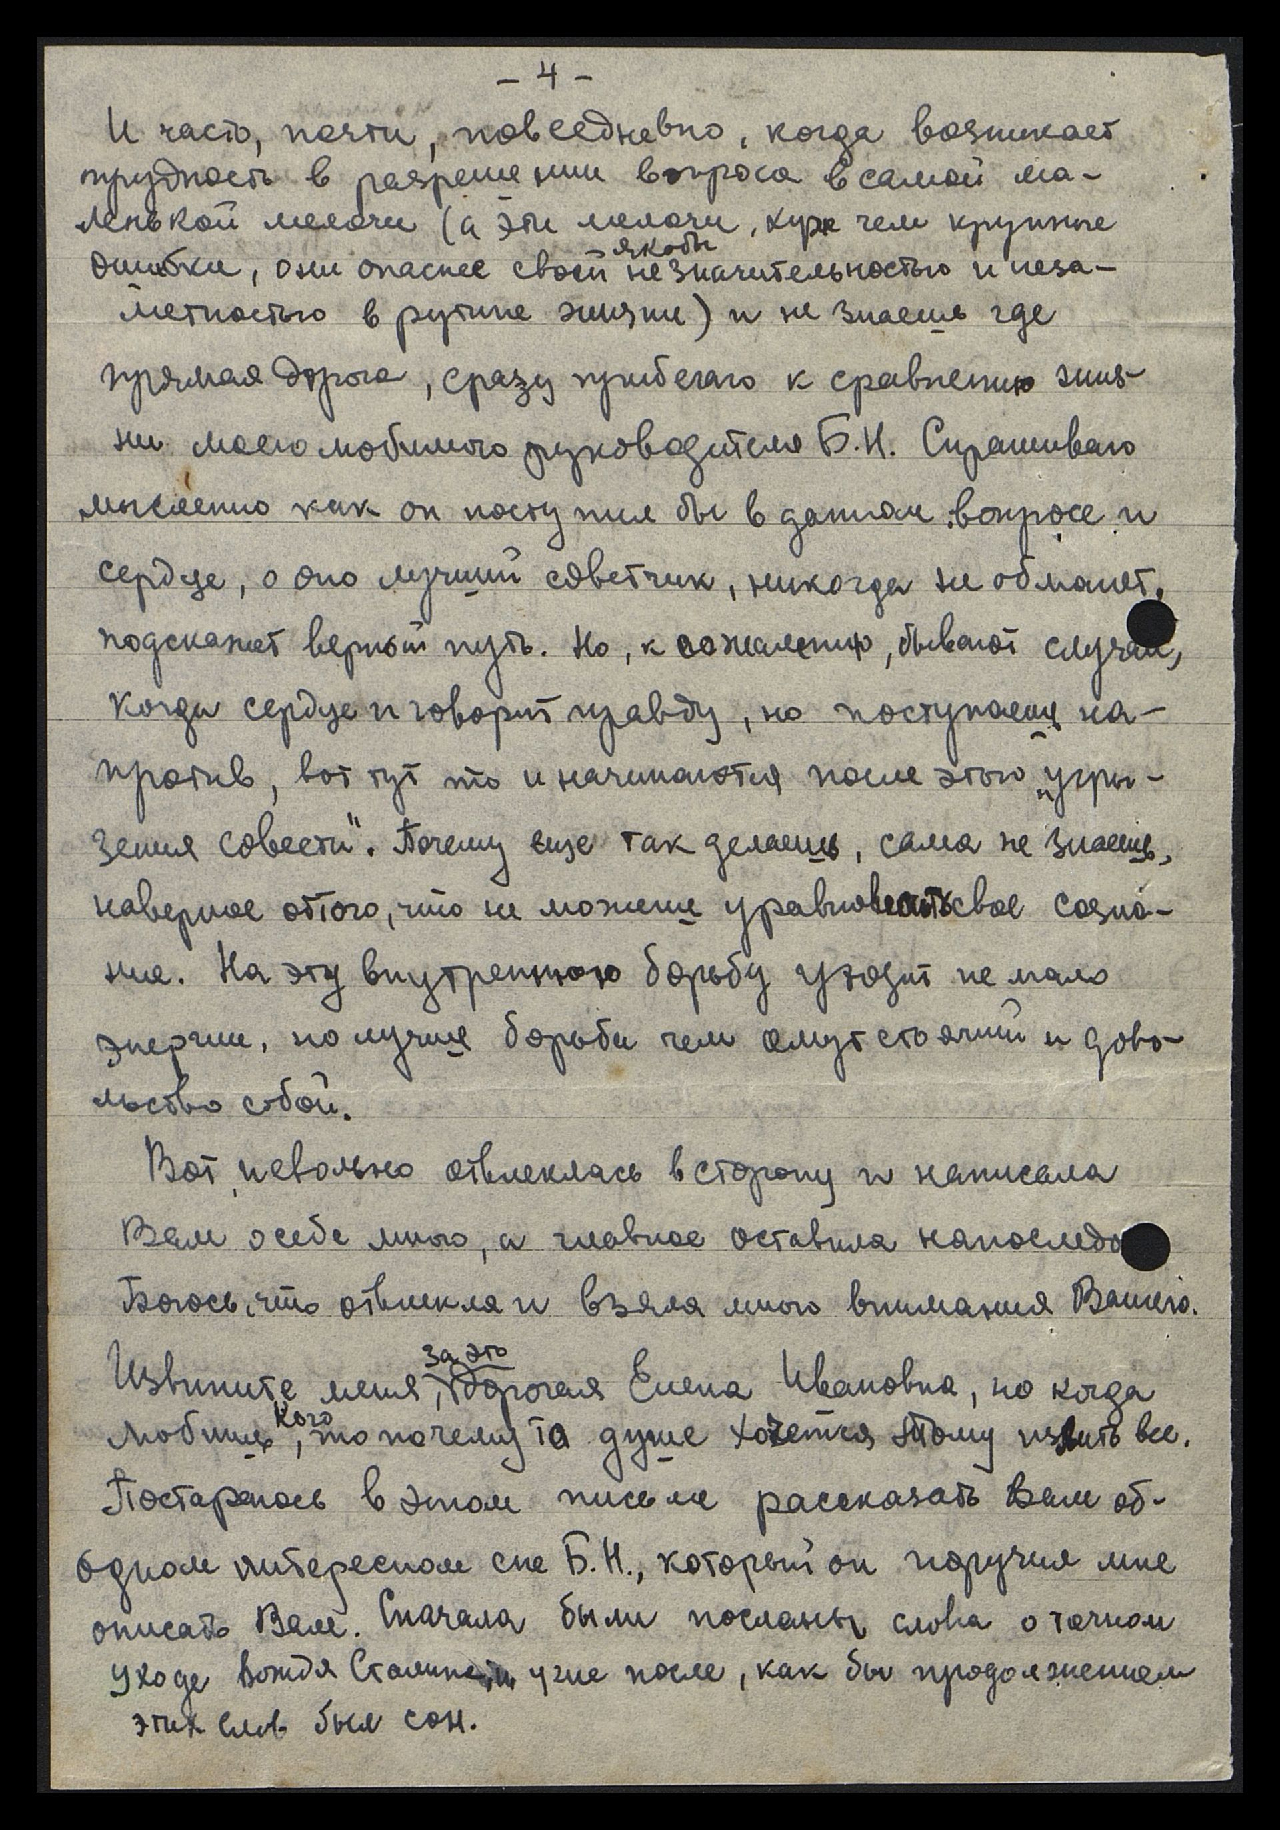 - 4 -
И часто, почти, повседневно, когда возникает
трудность в разрешении вопроса в самой ма-
ленькой мелочи (а эти мелочи, хуже чем крупные
якобы
ошибки, они опаснее своей незначительностью и неза-
метностью в рутине жизни) и не знаешь где
прямая дорога, сразу прибегаю к сравнению жиз-
ни моего любимого руководителя Б.Н. Спрашиваю
мысленно как он поступил бы в данном вопросе и
сердце, о оно лучший советчик, никогда не обманет,
подскажет верный путь. Но, к сожалению, бывают случаи,
когда сердце и говорит правду, но поступаешь на-
против, вот тут то и начинаются после этого „угры-
зения совести". Почему еще так делаешь, сама не знаешь,
наверное оттого, что не можешь уравновесить свое созна-
ние. На эту внутреннюю борьбу уходит не мало
энергии, но лучше борьба чем омут стоячий и дово-
льство собой.
Вот, невольно отвлеклась в сторону и написала
Вам о себе много, а главное оставила напоследо
Боюсь, что отвлекла и взяла много внимания Вашего.
за это
Извините меня, дорогая Елена Ивановна, но когда
кого
любишь, то почему то душе хочется этому излить все.
Постараюсь в этом письме рассказать Вам об-
одном интересном сне Б.Н., который он поручил мне
описать Вам. Сначала были посланы слова о точном
уходе вождя Сталина, и уже после, как бы продолжением
этих слов был сон.